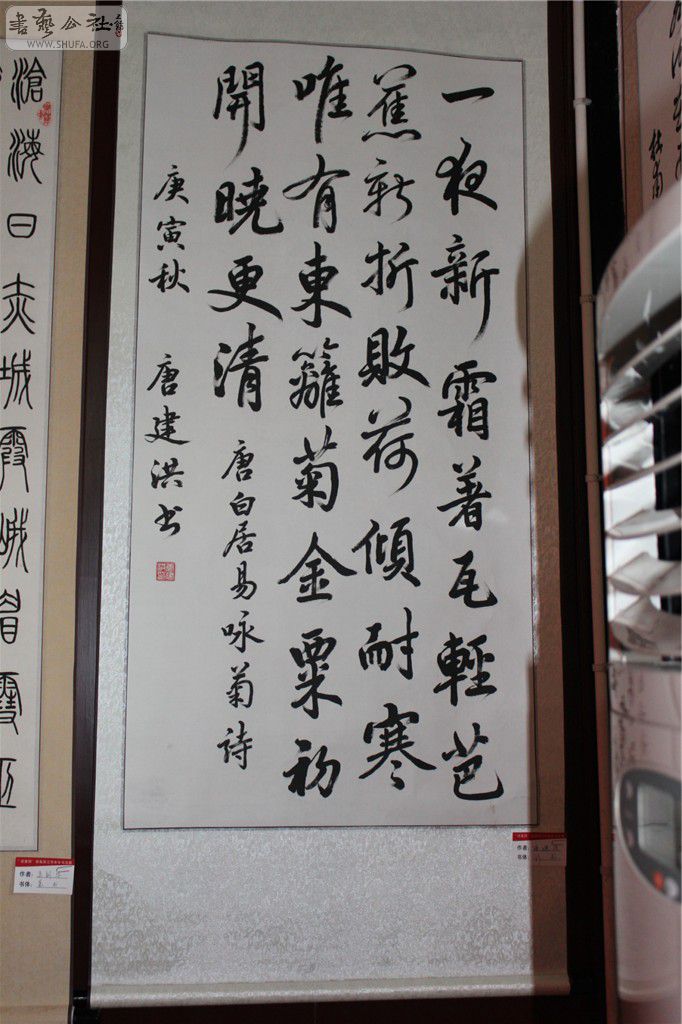 書藝公社
WWW.SHUFA.ORG
一夜新霜著瓦輕芭
蕉新折敗荷傾耐寒
唯有東籬菊金粟初
開曉更清
唐白居易咏菊詩
庚寅秋 唐建洪书
滄海日赤城霞峨眉雪巫
作者:
书体:
作者:
书体: